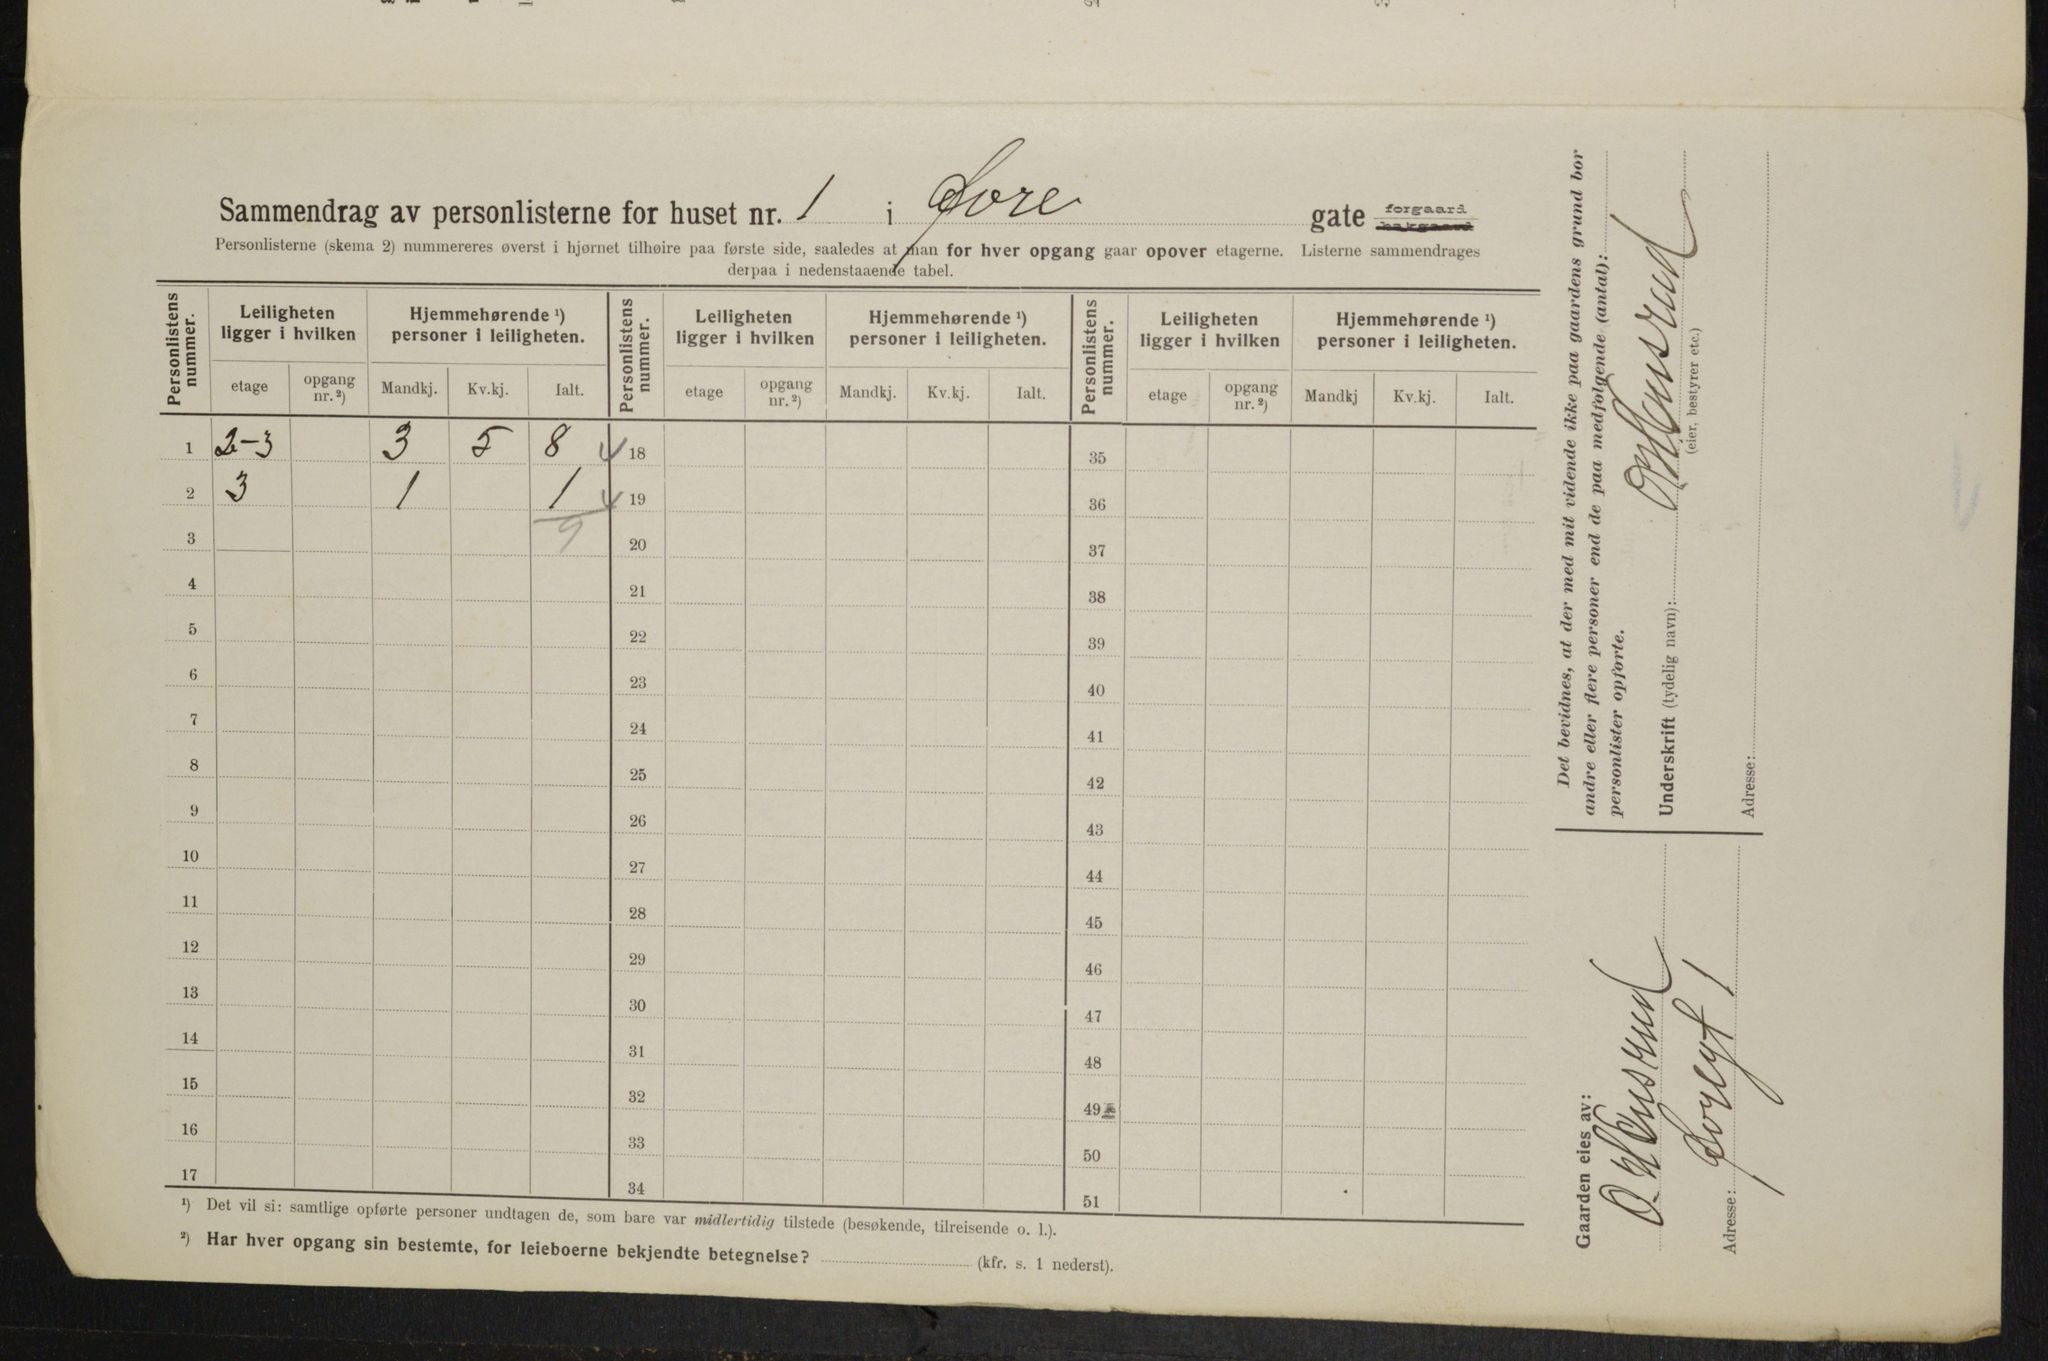 Sammendrag av personlisterne for huset nr. 1 i Sore gate forgaard bakgaard
Personlisterne (skema 2) nummereres øverst i hjørnet tilhøire paa første side, saaledes at man for hver opgang gaar opover etagerne. Listerne sammendrages
derpaa i nedenstaaende tabel.
Personlistens nummer. Leiligheten ligger i hvilken Hjemmehørende ¹) personer i leiligheten. Personlistens nummer. Leiligheten ligger i hvilken Hjemmehørende ¹) personer i leiligheten. Personlistens nummer. Leiligheten ligger i hvilken Hjemmehørende ¹) personer i leiligheten.
etage opgang nr. ²) Mandkj. Kv.kj. Ialt. etage opgang nr. ²) Mandkj. Kv.kj. Ialt. etage opgang nr. ²) Mandkj Kv.kj. Ialt.
1 2-3 3 5 8 18 35
2 3 1 1 19 36
3 9 20 37
4 21 38
5 22 39
6 23 40
7 24 41
8 25 42
9 26 43
10 27 44
11 28 45
12 29 46
13 30 47
14 31 48
15 32 49
16 33 50
17 34 51
¹) Det vil si: samtlige opførte personer undtagen de, som bare var midlertidig tilstede (besøkende, tilreisende o. l.).
²) Har hver opgang sin bestemte, for leieboerne bekjendte betegnelse? (kfr. s. 1 nederst).
Det bevidnes, at der med mit vidende ikke paa gaardens grund bor
andre eller flere personer end de paa medfølgende (antal):
personlister opførte.
Underskrift (tydelig navn):
(eier, bestyrer etc.)
Adresse:
Gaarden eies av:
Adresse: Soregt 1